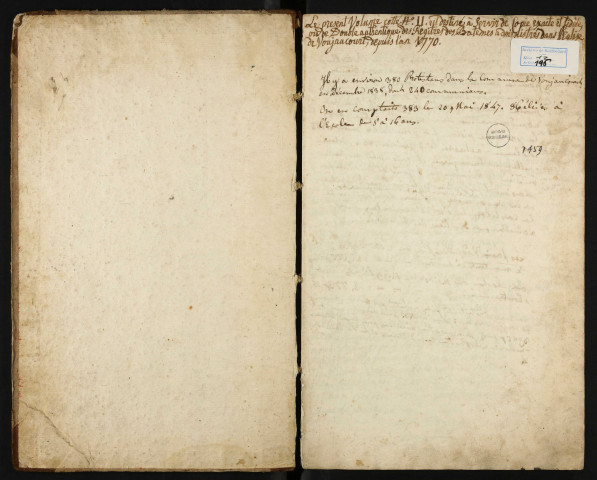 Le present Volume cotté N.° II. est destiné à servir de Copie exacte et
de Double authentique des Registres des Batêmes administrés dans l'Eglise
de Voujaucourt, depuis l'an 1770.
148
Il y a environ 380 Protestans dans la commune de Voujaucourt
en Décembre 1838, dont 240 communians.
On en comptoit 383 le 20 Mai 1847. 86 élèves à
l'Ecole de 5 à 16 ans.
1453